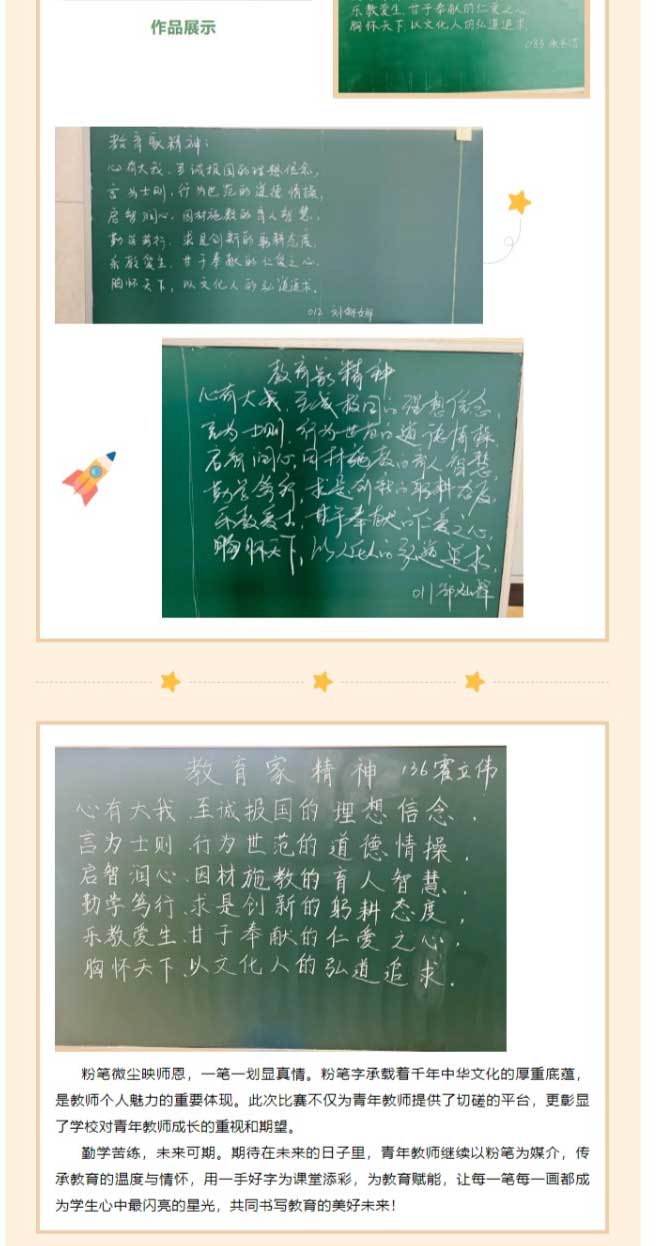 作品展示
乐教爱生、甘于奉献的仁爱之心
胸怀天下、以文化人的弘道追求.
083
教育家精神:
心有大我、至诚报国的理想信念,
言为士则、行为世范的道德情操,
启智润心、因材施教的育人智慧,
勤学笃行、求是创新的躬耕态度,
乐教爱生、甘于奉献的仁爱之心.
胸怀天下, 以文化人的弘道追求.
012 刘
教育家精神
心有大我、至诚报国的理想信念,
言为士则、行为世范的道德情操,
启智润心、因材施教的育人智慧,
勤学笃行、求是创新的躬耕态度,
乐教爱生、甘于奉献的仁爱之心,
胸怀天下, 以人化人的弘道追求,
011 邹
教育家精神 136霍立伟
心有大我、至诚报国的理想信念.
言为士则、行为世范的道德情操,
启智润心、因材施教的育人智慧,
勤学笃行、求是创新的躬耕态度,
乐教爱生、甘于奉献的仁爱之心,
胸怀天下、以文化人的弘道追求.
粉笔微尘映师恩，一笔一划显真情。粉笔字承载着千年中华文化的厚重底蕴，
是教师个人魅力的重要体现。此次比赛不仅为青年教师提供了切磋的平台，更彰显
了学校对青年教师成长的重视和期望。
勤学苦练，未来可期。期待在未来的日子里，青年教师继续以粉笔为媒介，传
承教育的温度与情怀，用一手好字为课堂添彩，为教育赋能，让每一笔每一画都成
为学生心中最闪亮的星光，共同书写教育的美好未来！